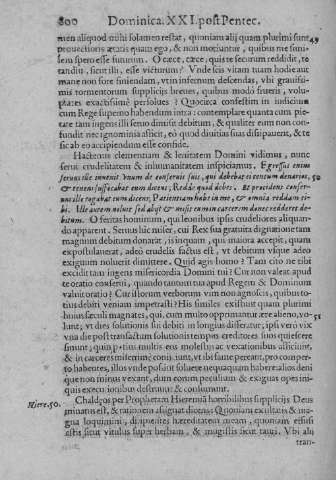 800 Dominica XXI. post Pentec.
men aliquod mihi solamen restat, quoniam alij quum plurimi sunt 49
prouectioris ætatis quam ego, & non moriuntur, quibus me funi-
spero esse futurum. O cæce, cæce, quis te securum reddidit, te
tandiu, sicut illi, esse victurum? Vnde scis vitam tuam hodie aut
mane non fore finiendam, & te in infernum descendas, vbi grauissi-
mis tormentorum supplicijs breues, quibus modò frueris, volu-
ptates exactissimè persolues? Quocirca confestim in iudicium
cum Rege superno habendum intra: contemplare quanta cum pie-
tate tam ingens illi fœnus dimisit debitum, & qualiter eum non con-
fundit nec ignominia afficit, eò quod diuitias suas dissipauerit, & te
sic ab eo accipiendum esse confide.
Hactenus clementiam & lenitatem Domini vidimus, nunc
serui crudelitatem & inhumanitatem inspiciamus, Egressus enim
seruus ille inuenit vnum de conseruis suis, qui debebat ei centum denarios, 50
& tenens suffocabat eum dicens; Redde quod debes. Et procidens conser-
uus ille rogabat eum dicens; Patientiam habe in me, & omnia reddam ti-
bi. Ille autem noluit sed abijt & misit eum in carcerem donec redderet de-
bitum. O feritas hominum, qui leonibus ipsis crudeliores aliquan-
do apparent. Seruus hic miser, cui Rex sua gratuita dignatione tam
magnum debitum donarat, is inquam, qui maiora accepit, quam
expostulauerat, adeò crudelis factus est, vt debitum vsque adeò
exiguum noluerit dimittere. Quid agis homo? Tam citò ne tibi
excidit tam ingens misericordia Domini tui? Cur non valeat apud
te oratio conserui, quando tantum tua apud Regem & Dominum
valuit oratio? Cur illorum verborum vim non agnoscis, quibus to-
ties debiti veniam impetrasti? His similes existunt quam plurimi
huius sæculi magnates, qui, cum multo opprimantur ære alieno, vo- 51
lunt, vt dies solutionis sui debiti in longius differatur; ipsi verò vix
vna die post transactum solutionis tempus creditores suos quiescere
sinunt; quin potius multis eos molestijs ac vexationibus afficiunt,
& in carceres intrudi conijciunt, vt ibi fame pereant, pro comper-
to habentes, illos vnde possint soluere nequaquam habere: alios deni
que non minus vexant, dum eorum peculium & exiguas opes ini-
quis executionibus destruunt & consumunt.
Hiere. 50. Chaldæos per Prophetam Hieremiam horribilibus supplicijs Deus
minatus est, & rationem assignat dicens: Quoniam exultatis & ma-
gna loquimini, diripientes hæreditatem meam, quoniam effusi
estis sicut vitulus super herbam, & mugistis sicut tauri. Vbi alij
tran-